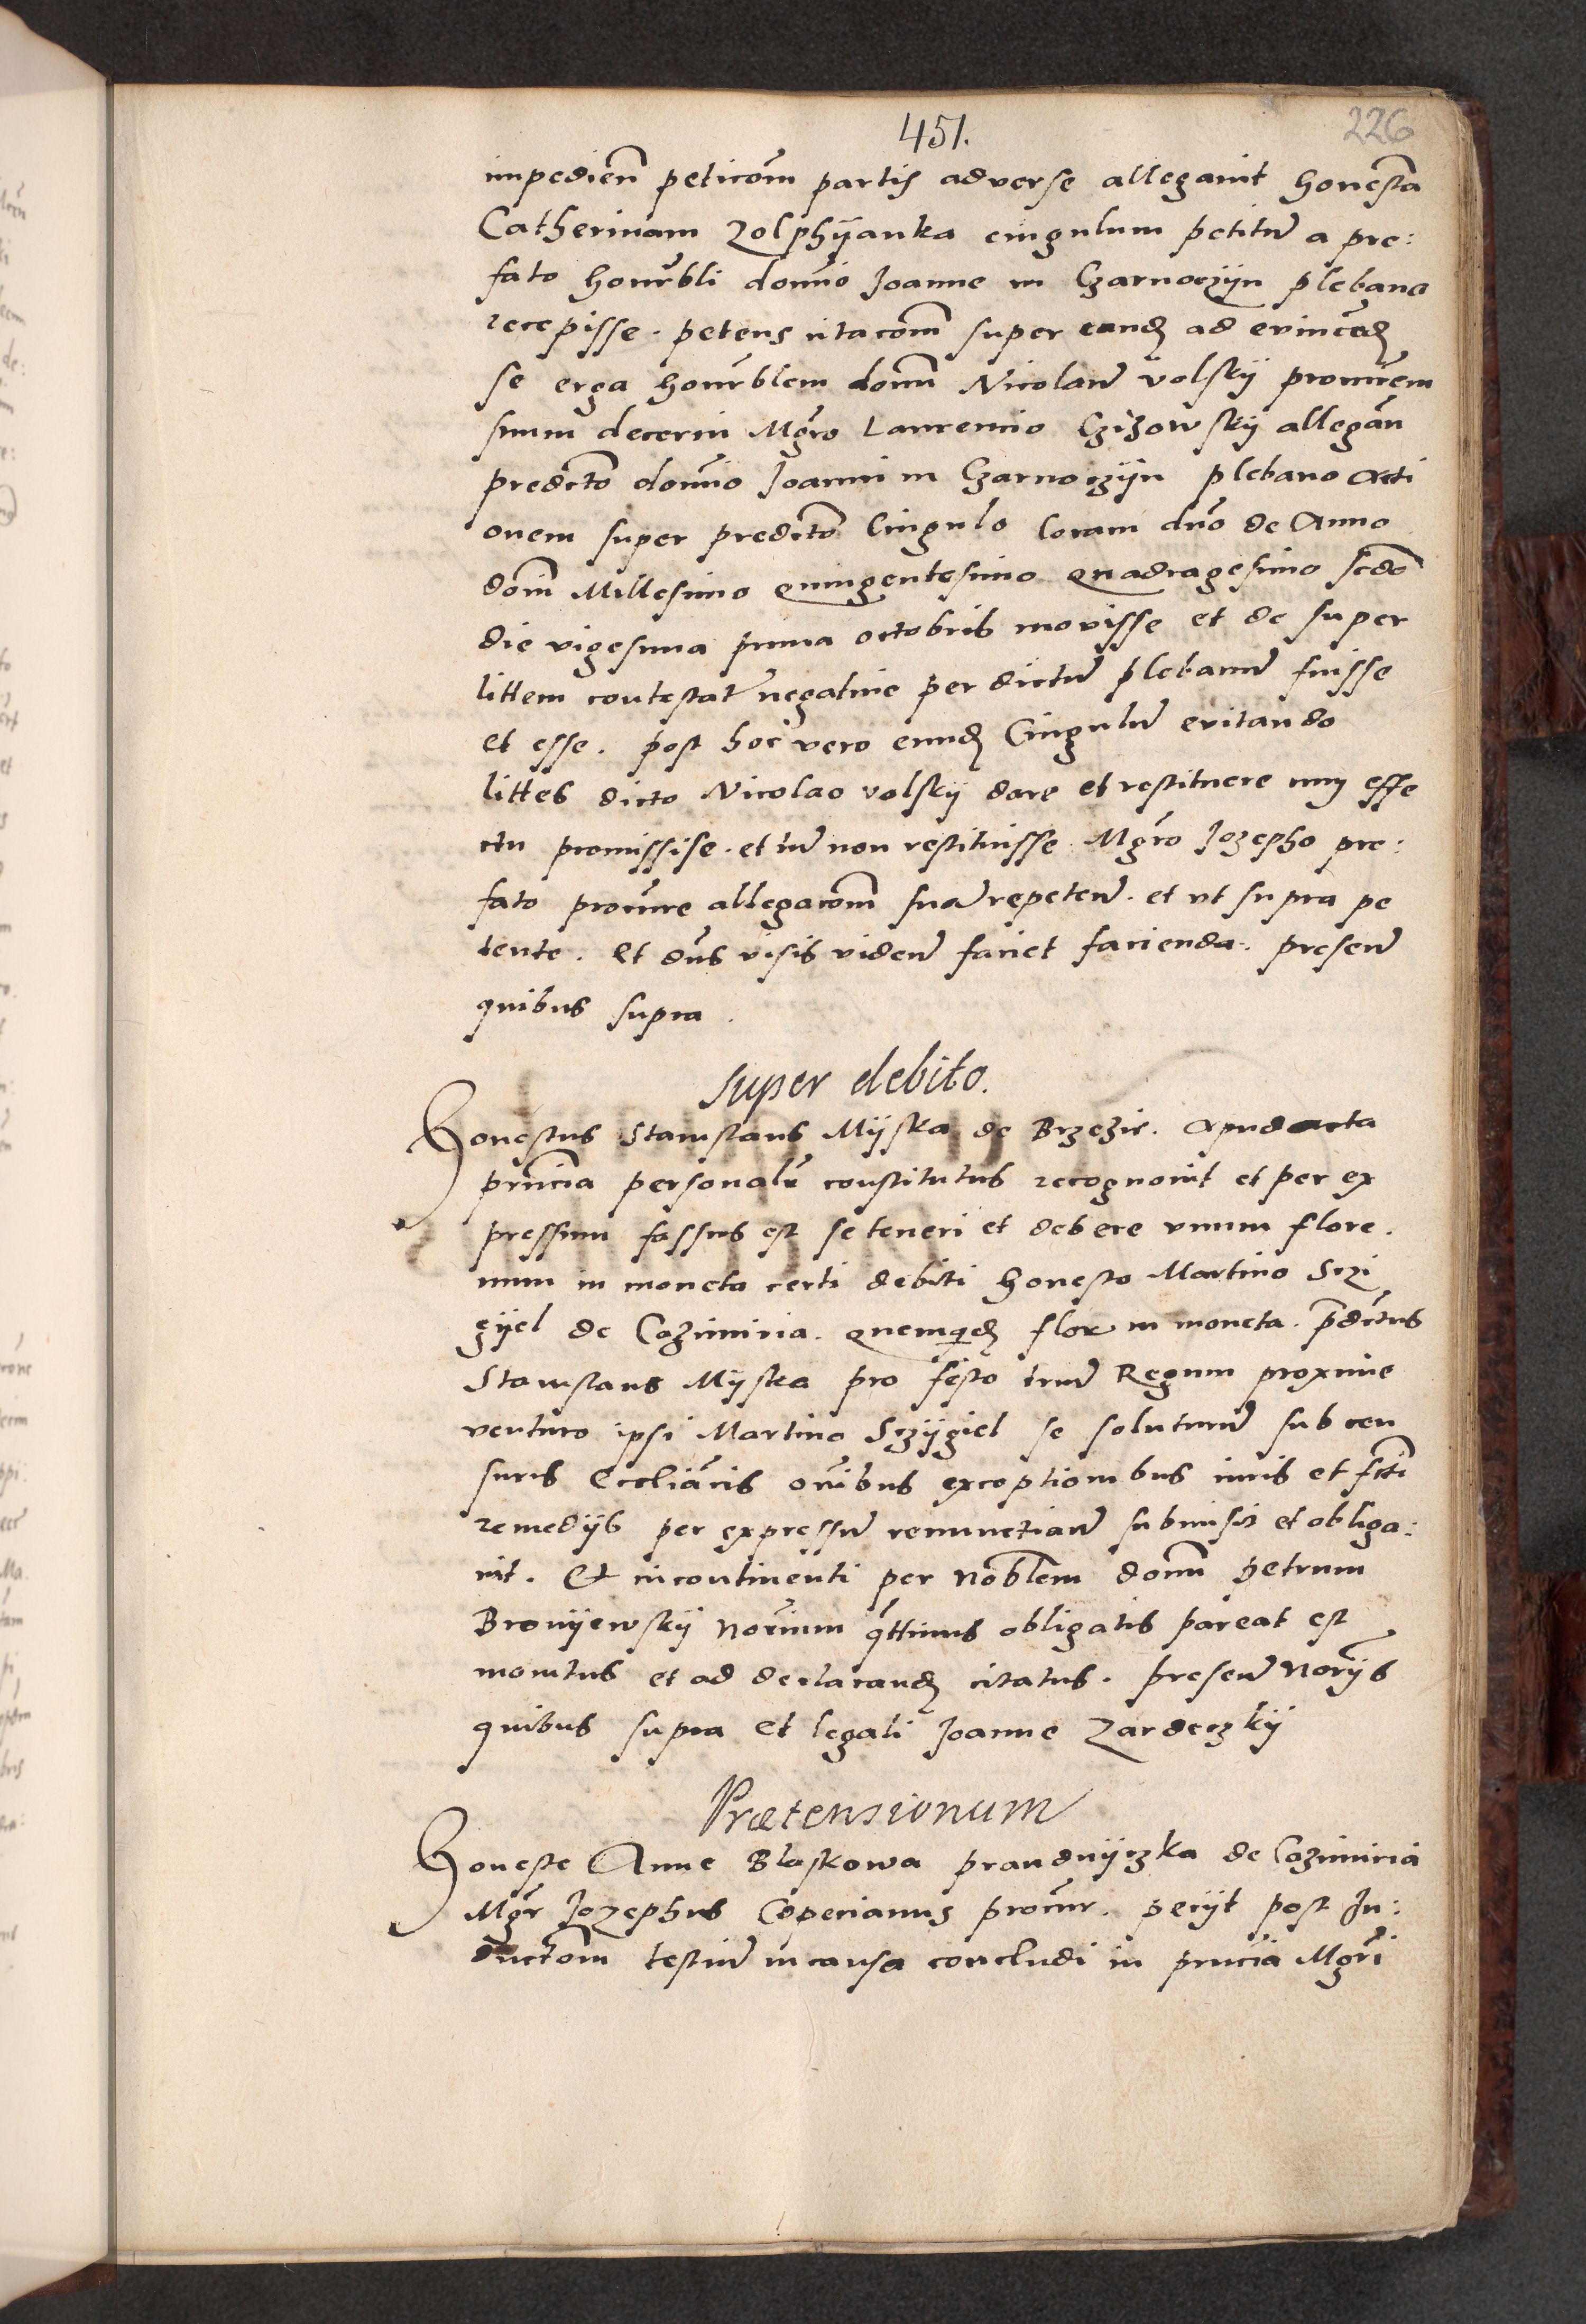 451.
226
impedien peticom partis adverse allegavit honesta
Catherinam Zolphÿanka cingulum petitu a pre:
fato honrbli domio Joanne in Czarnoczÿn plebano
recepisse. petens citacom super eand ad evincend
se erga honrblem domn Nicolau volskÿ procurem
suum decerni Mgro Laurencio Czizowskÿ allegan
predicto domio Joanni in Czarnoczÿn plebano Acti
onem super predicto Cingulo Coram dno de Anno
dom Millesimo Quingentesimo Quadragesimo scdo
die vigesima prima octobris movisse et de super
littem contestat negative per dictu plebanu fuisse
et esse. post hoc vero eund Cingulu evitando
littes dicto Nicolao volskÿ dare et restituere cum effe
ctu promissise. et tn non restituisse Mgro Jozepho pre:
fato procure allegacom sua repeten. et vt supra pe
tente. Et dns visis viden faciet facienda. presen
quibus supra.
super debito.
Honestus Stanislaus Mÿska de Brzezie. Apud acta
pnncia personalr constitutus recognovit et per ex
pressum fassus est se teneri et debere vnum flore.
num in moneta certi debiti honesto Martino Sczi
gÿel de Cazimiria. Quemquid flor in moneta. pdictus
Stanislaus Mÿska pro festo triu Regum proxime
venturo ipsi Martino Sczÿgiel se soluturu sub cen
suris Eccliacis omibus exceptionibus iuris et fcti
remedÿs per expressu renunctian submisit et obliga:
vit. Et incontinenti per Noblem domn petrum
Bronÿewskÿ Norium qttinus obligatis pareat est
monitus et ad declarand citatus. presen Norÿs
quibus supra et legali Joanne Zardeczkÿ
Prætensionum
Honeste Anne Blaskowa prandnÿczka de Cazimiria
Mgr Jozephus Coperianus procur. petÿt post In:
ductom testiu in causa concludi in pncia Mgri